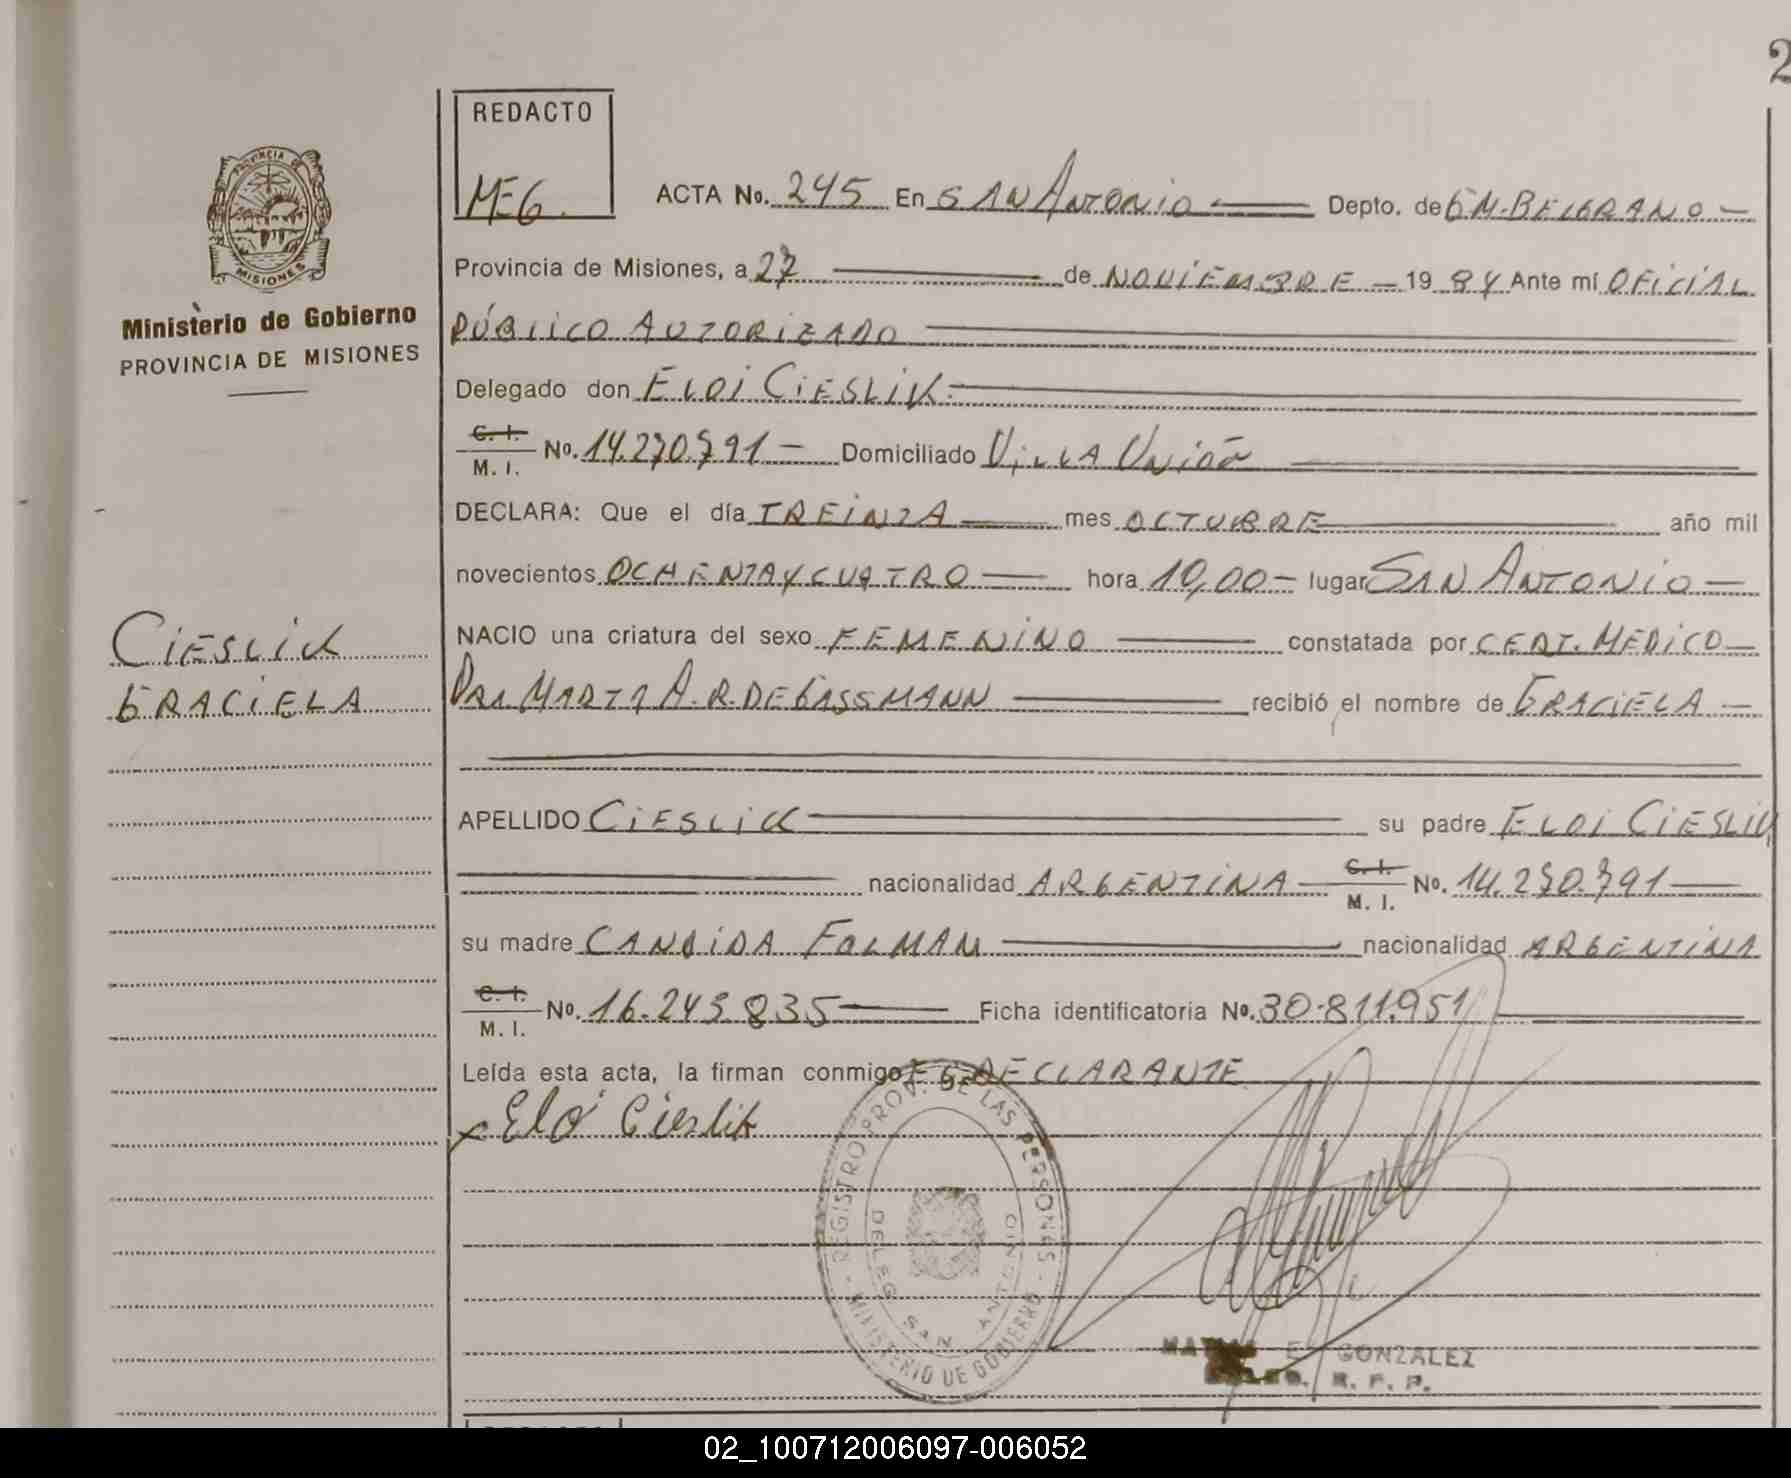 2
REDACTO
MEG.
ACTA No. 245 En SAN ANTONIO Depto. de GM. BELGRANO
Provincia de Misiones, a 27 de NOVIEMBRE 1984 Ante mí OFICIAL
PÚBLICO AUTORIZADO
Delegado don ELOI CIESLIK
C. I.
M. I. No. 14.270.791 Domiciliado VILLA UNIÓN
DECLARA: Que el día TREINTA mes OCTUBRE año mil
novecientos OCHENTA Y CUATRO hora 10,00 lugar SAN ANTONIO
NACIO una criatura del sexo FEMENINO constatada por CERT. MEDICO
DRA. MARTA A. R. DE GASSMANN recibió el nombre de GRACIELA
APELLIDO CIESLIK su padre ELOI CIESLIK
nacionalidad ARGENTINA C. I.
M. I. No. 14.270.791
su madre CANDIDA FOLMAM nacionalidad ARGENTINA
C. I.
M. I. No. 16.245.835 Ficha identificatoria No. 30.811.951
Leída esta acta, la firman conmigo EL DECLARANTE
x Eloi Cieslik
PROVINCIA DE
MISIONES
Ministerio de Gobierno
PROVINCIA DE MISIONES
CIESLIK
GRACIELA
REGISTRO PROV. DE LAS PERSONAS - MINISTERIO DE GOBIERNO -
DELEG. SAN ANTONIO
E. GONZALEZ
R. P. P.
02_100712006097-006052